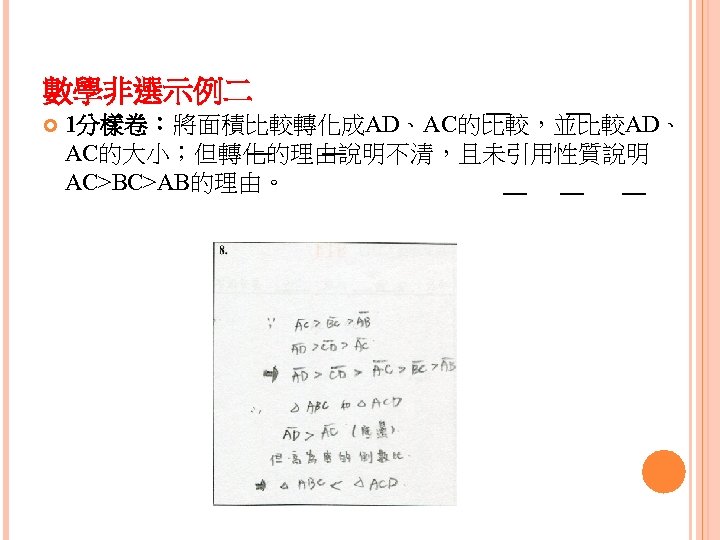 數學非選示例二
1分樣卷：將面積比較轉化成AD、AC的比較，並比較AD、
AC的大小；但轉化的理由說明不清，且未引用性質說明
AC>BC>AB的理由。
8.
∵ A̅C̅ > B̅C̅ > A̅B̅
A̅D̅ > C̅D̅ > A̅C̅
⇒ A̅D̅ > C̅D̅ > A̅C̅ > B̅C̅ > A̅B̅
∴ △ABC 和 △ACD
A̅D̅ > A̅C̅ (底邊)
但高為底的倒數比
⇒ △ABC < △ACD.